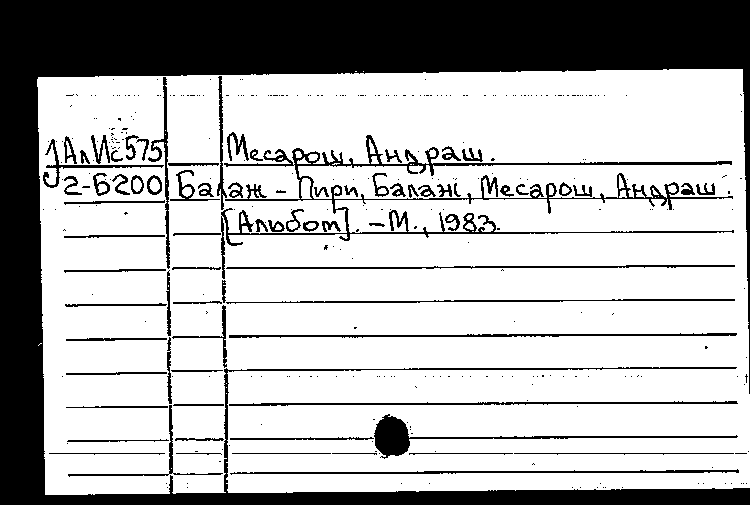 JАлИс575 Месарош, Андраш.
2-Б200 Балаж - Пири, Балаж, Месарош, Андраш.
[Альбом]. - М., 1983.